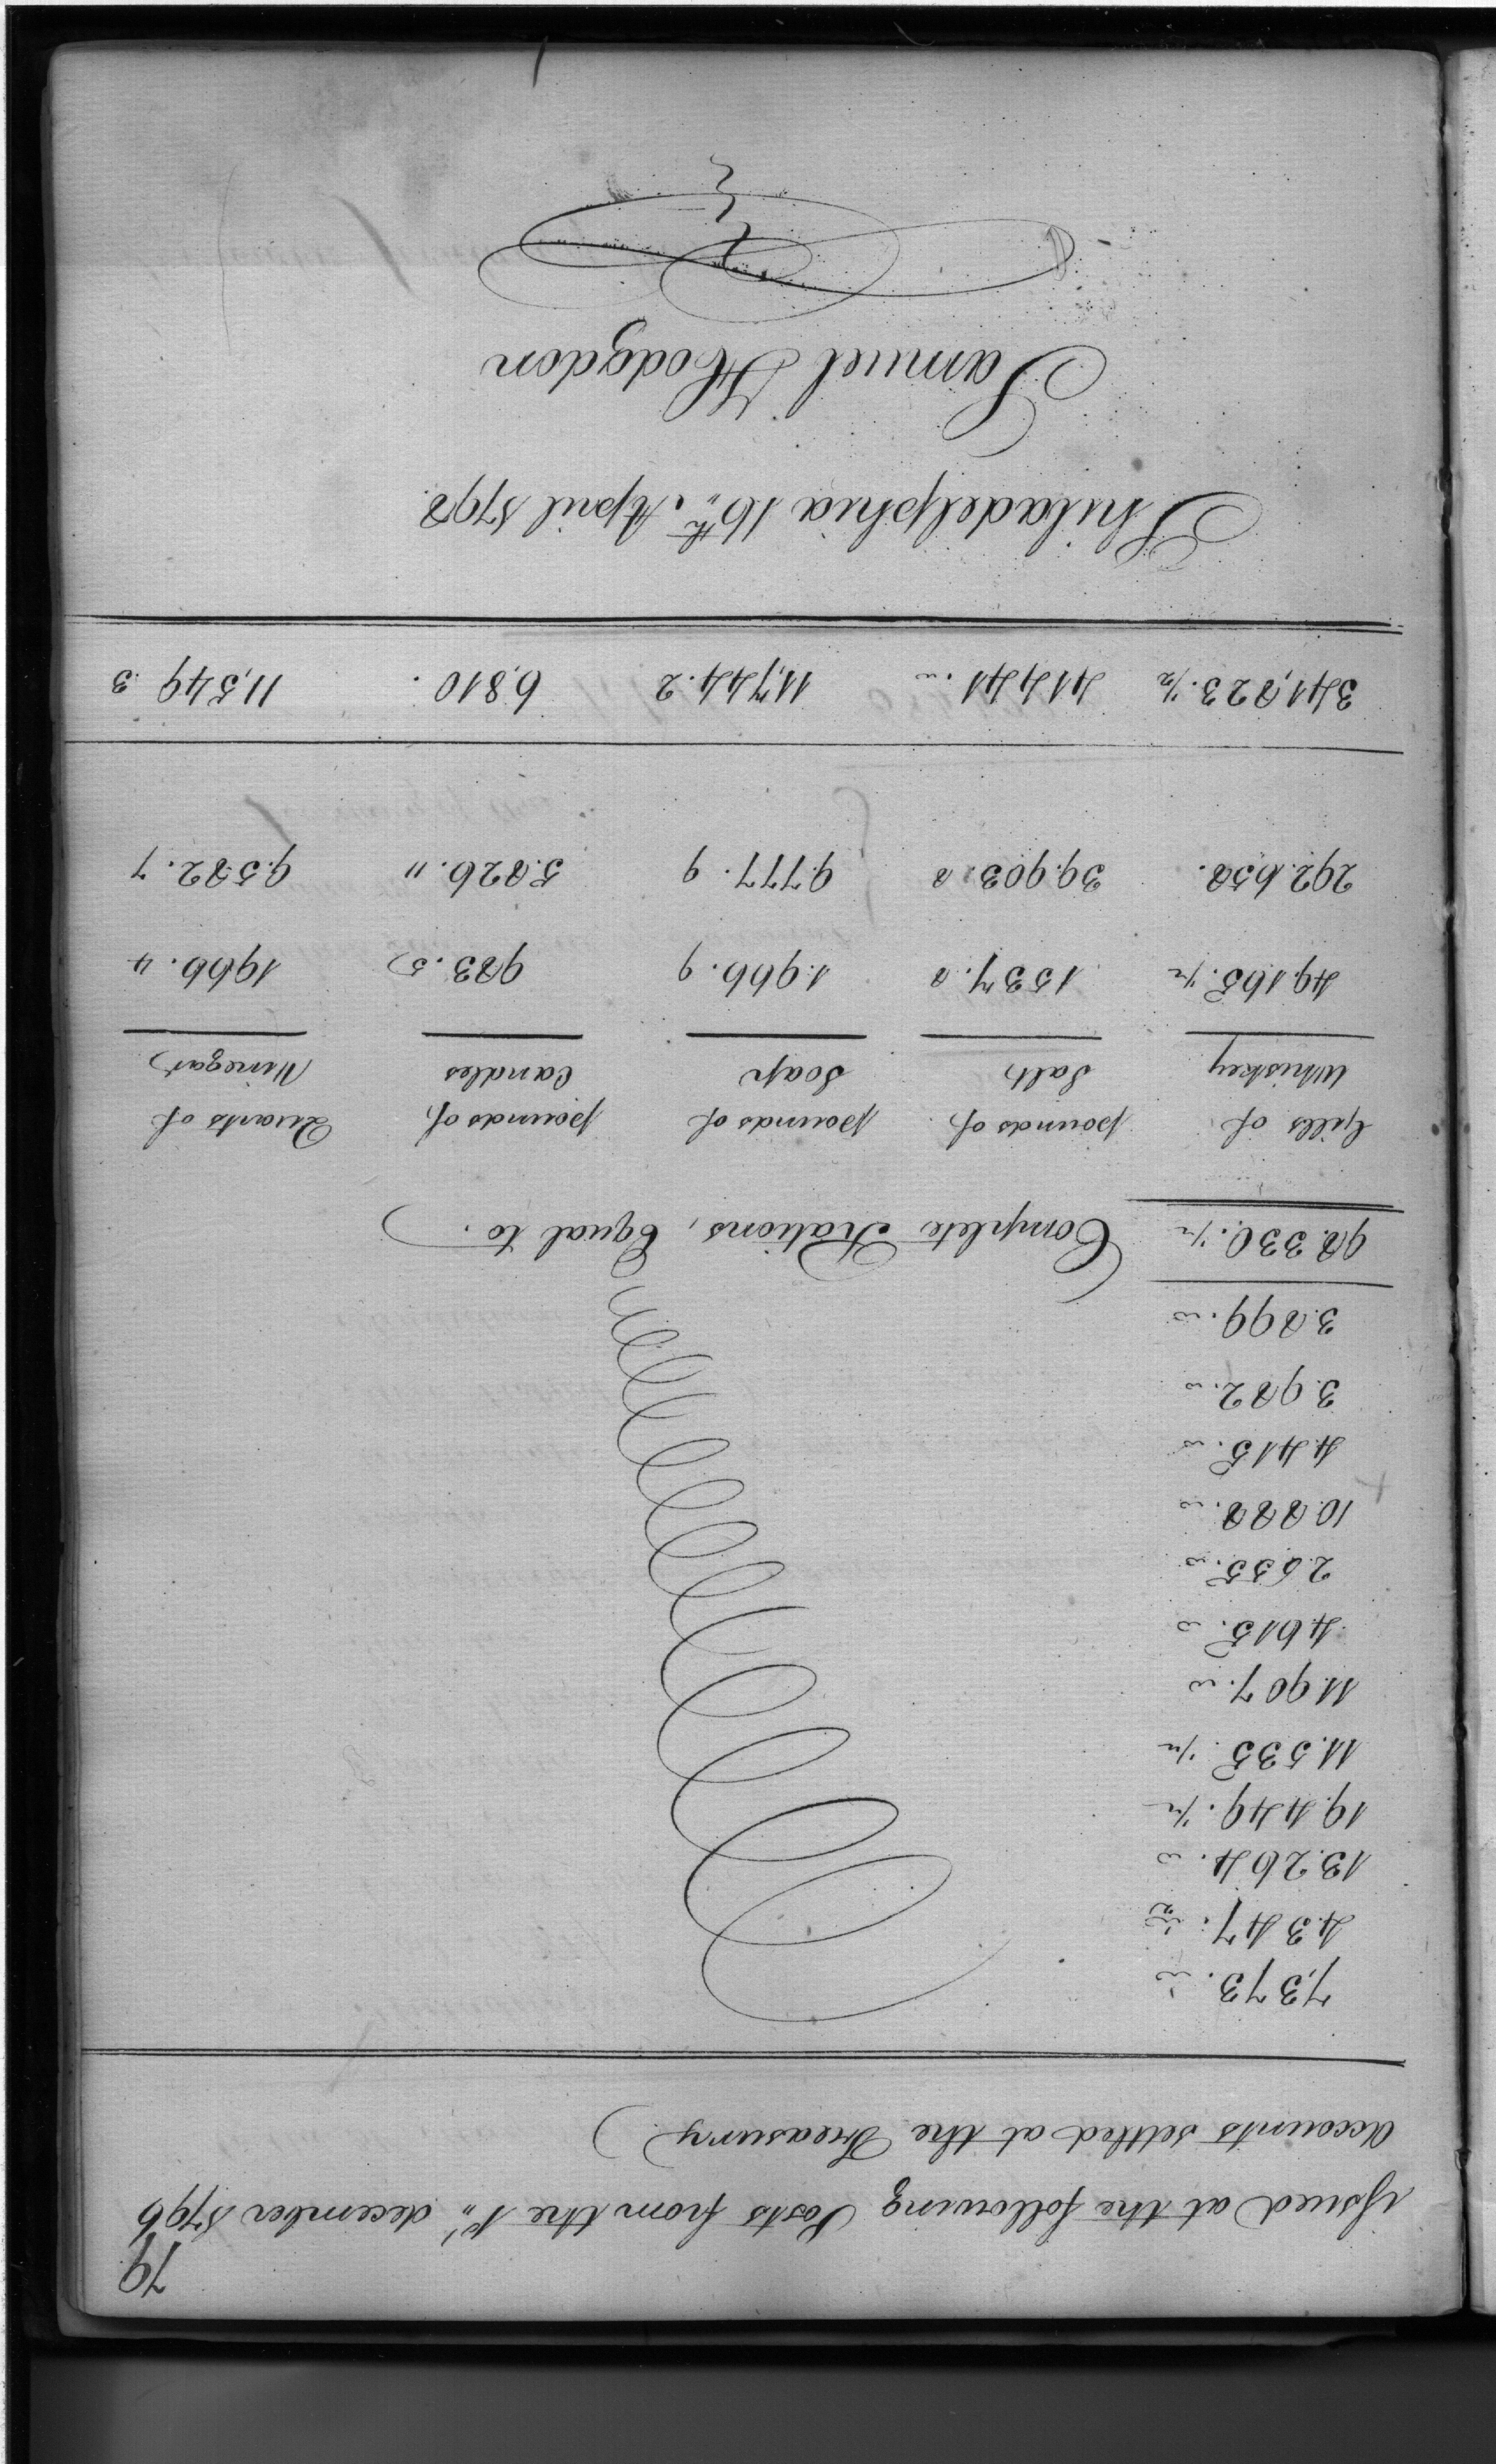 79
issued at the following Posts from the 1st,, december 1796
Accounts settled at the Treasury
7,373. "
4.347. ½
13.264. "
19.449. ½
11.535. ½
11.907. "
4.615. "
2.655. "
10.888. "
4.415. "
3.982. "
3.899. "
98.330. ½ Complete Rations, Equal to.
Gills of pounds of pounds of pounds of Quarts of
Whiskey Salt Soap Candles Vinegar
49.165. ½ 1537. 8 1.966. 9 983. 5 1966. 4
292.658. 39.903. 8 9.777. 9 5.826. " 9.582. 7
341,823. ½ 41441. " 11,744. 2 6,810. 11,549. 3
Philadelphia 16th,, April 1798.
Samuel Hodgdon